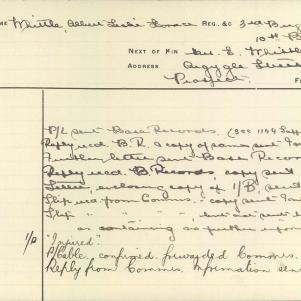 ME Whittle, Albert Leslie Horace REG. &C 3rd
10th B
NEXT OF KIN Mrs. E. Whittle
ADDRESS Argyle Street
Prospect. F
P/L sent Base Records. (see 1164
Reply recd. B.R. & copy of same sent
Further letter sent Base Recor
Reply recd. B Records, copy sent
enclosing copy of 1/B, sent
Slip recd from Comms. copy sent
Slip " " " " but not sent
as containing no further infor
1/p "Inquired".
P/Cable confirmed. forwarded Commrs.
Reply from Commrs. Information sent